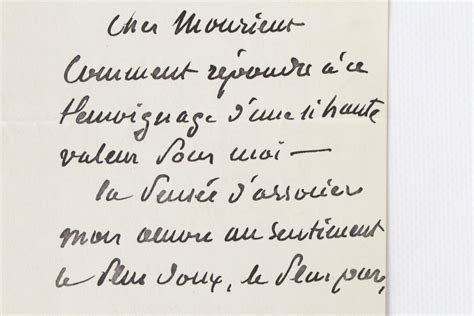 Cher Monsieur
Comment répondre à ce
témoignage d'une si haute
valeur pour moi —
la pensée d'associer
mon oeuvre au sentiment
le plus doux, le plus pur,